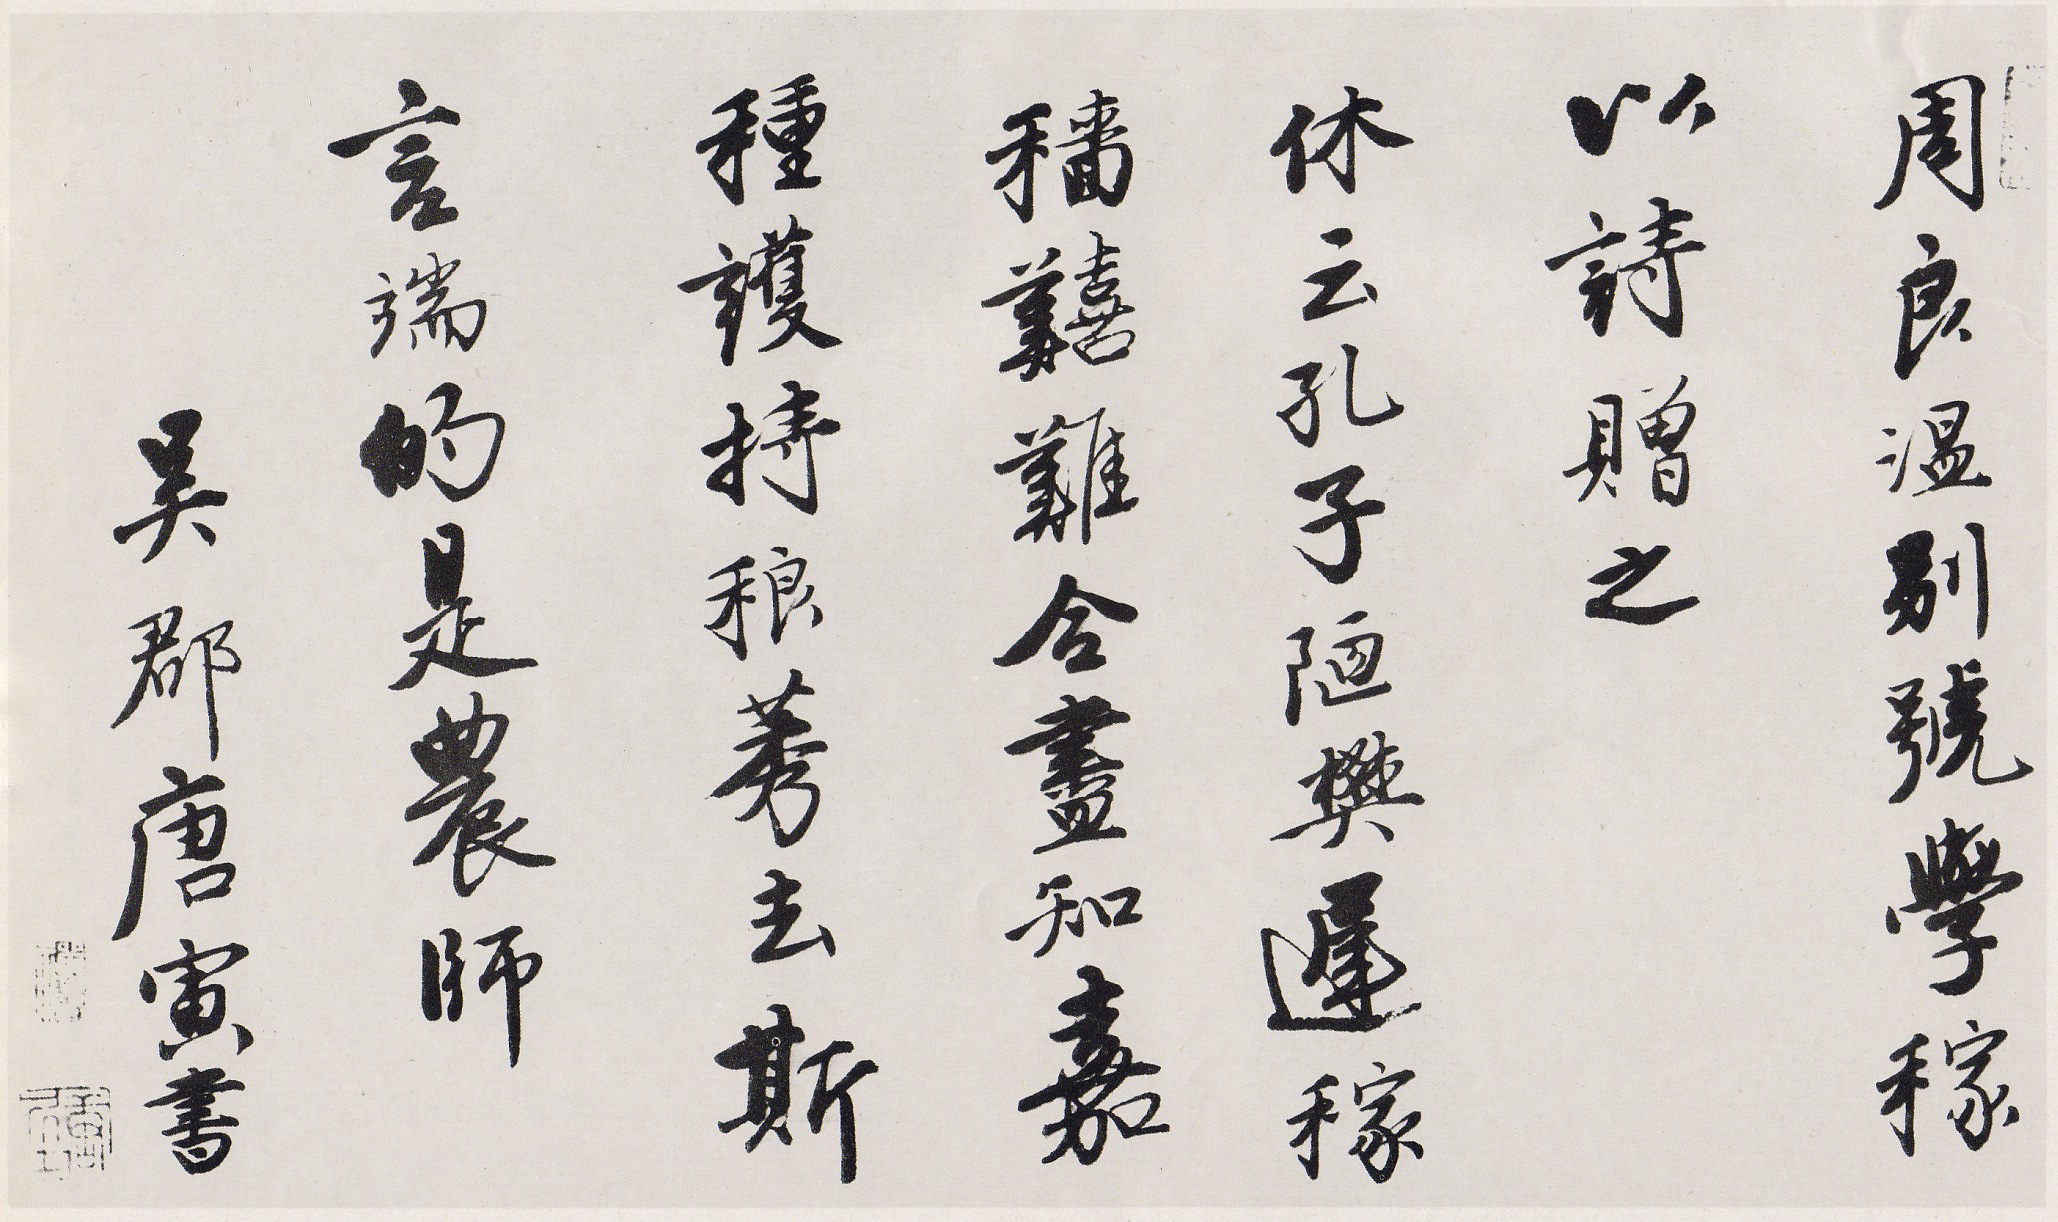 周良溫別號學稼
以詩贈之
休云孔子陋樊遲稼
穡囏難合盡知嘉
種護持稂莠去斯
言端的是農師
吳郡唐寅書